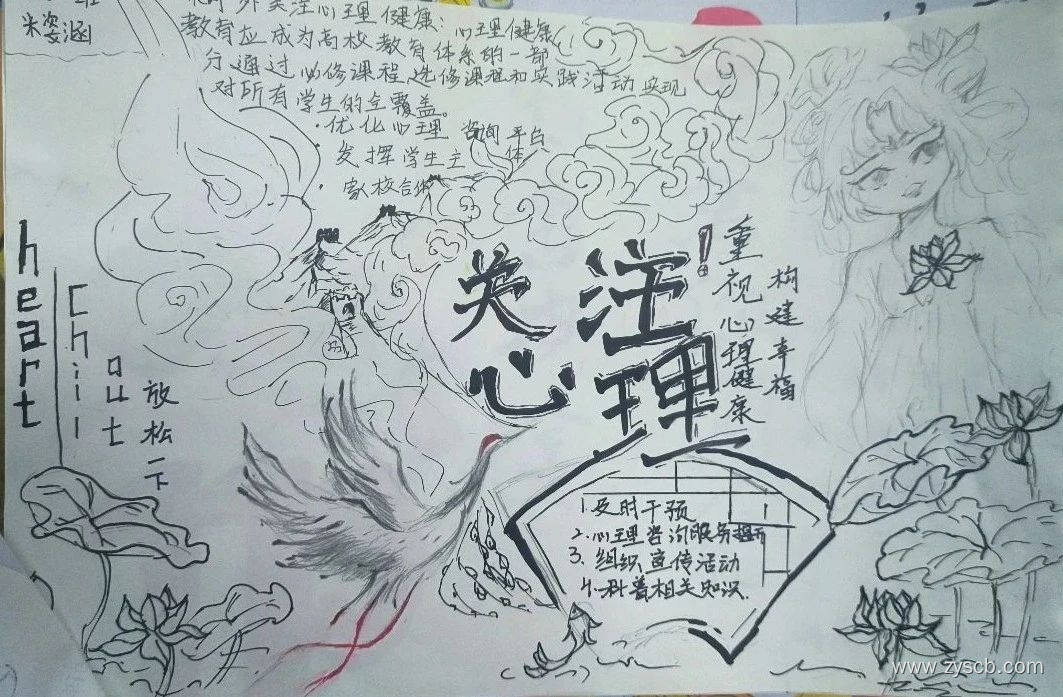 朱姿涵
外关注心理健康:心理健康
教育应成为高校教育体系的一部
分通过必修课程、选修课程和实践活动实现
对所有学生的全覆盖。
·优化心理咨询平台
·发挥学生主体
·家校合作
关注
心理
!
重视心理健康
构建幸福
heart
Chill
out
放松一下
1.及时干预
2.心理咨询服务提升
3.组织宣传活动
4.科普相关知识.
www.zyscb.com